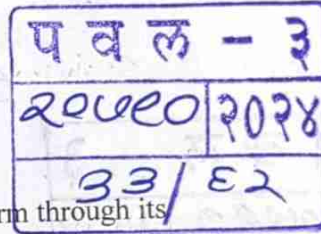 प व ल - ३
२०७९० २०२४
३३/६२
rm through its